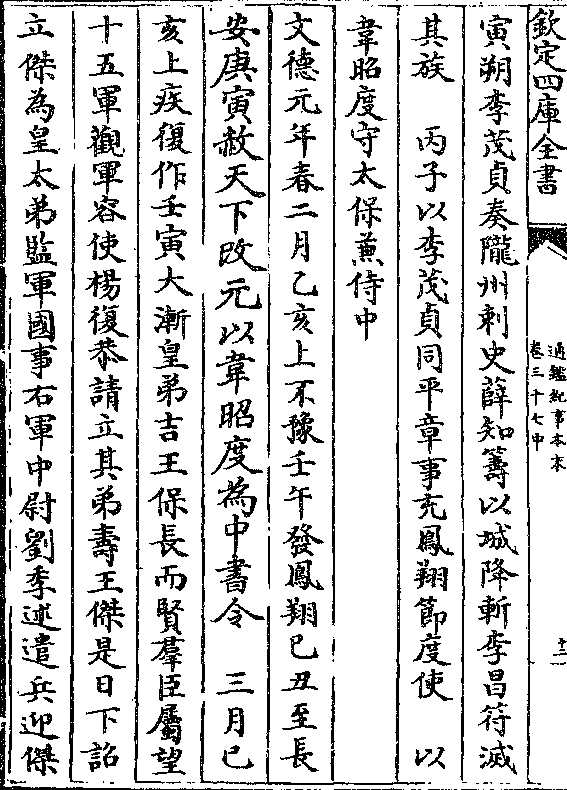 欽定四庫全書
通鑑紀事本末
卷三十七中
十二
寅朔李茂貞奏隴州刺史薛知籌以城降斬李昌符滅
其族　丙子以李茂貞同平章事充鳳翔節度使　以
韋昭度守太保兼侍中
文德元年春二月乙亥上不豫壬午發鳳翔已丑至長
安庚寅赦天下改元以韋昭度為中書令　三月已
亥上疾復作壬寅大漸皇弟吉王保長而賢羣臣屬望
十五軍觀軍容使楊復恭請立其弟壽王傑是日下詔
立傑為皇太弟監軍國事右軍中尉劉季述遣兵迎傑